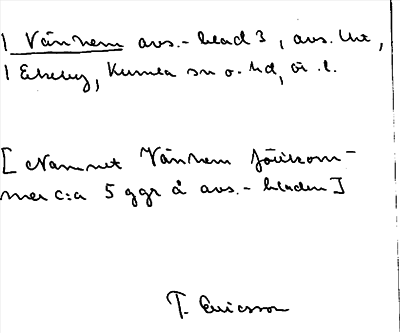 | Vänhem avs.-blad 3, avs. Ur,
| Ekeby, Kumla sn o. hd, Ör. l.
[Namnet Vänhem förekom-
mer c:a 5 ggr å avs.-bladen]
T. Ericsson